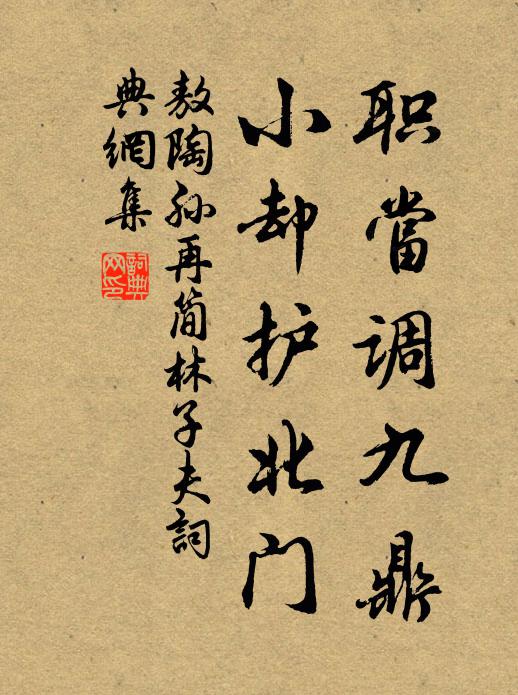 职當调九鼎
小却护北门
敖陶孙再简林子夫詞
典網集
詞典网印